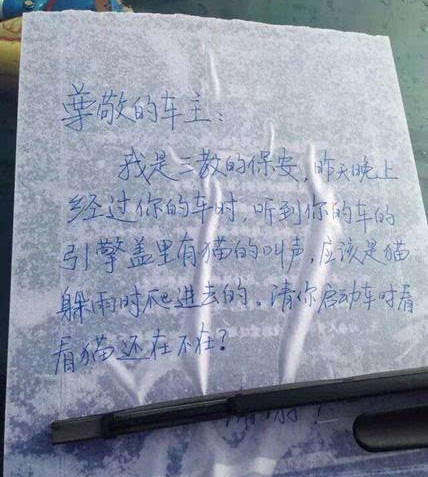 尊敬的车主:
我是三教的保安,昨天晚上
经过你的车时,听到你的车的
引擎盖里有猫的叫声,应该是猫
躲雨时爬进去的。请你启动车时看
看猫还在不在?